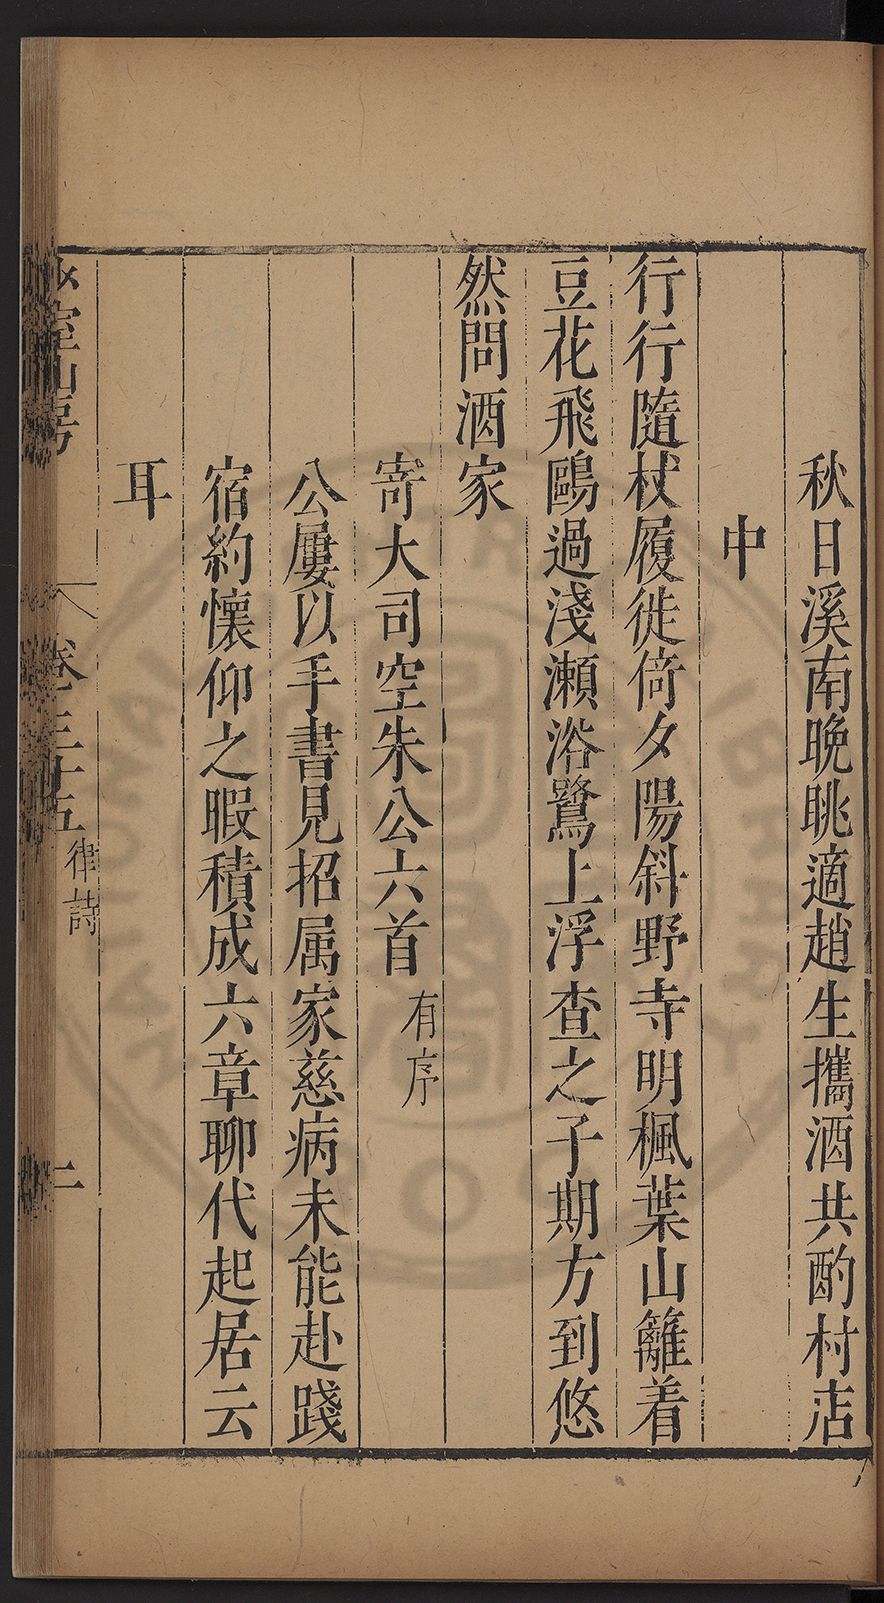 秋日溪南晚眺適趙生攜酒共酌村店
中
行行隨杖履徙倚夕陽斜野寺明楓葉山籬着
豆花飛鷗過淺瀨浴鷺上浮查之子期方到悠
然問酒家
寄大司空朱公六首有序
公屢以手書見招属家慈病未能赴踐
宿約懷仰之暇積成六章聊代起居云
耳
室山房 卷三十五 律詩 二